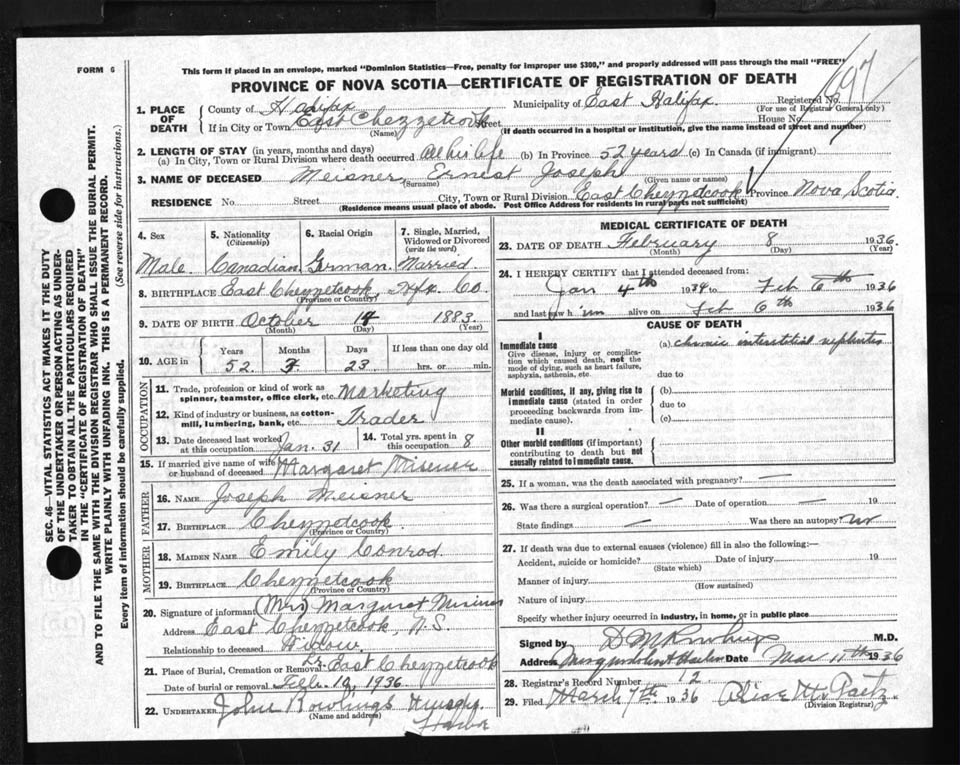 FORM 6
This form if placed in an envelope, marked "Dominion Statistics—Free, penalty for improper use $300," and properly addressed will pass through the mail "FREE"
PROVINCE OF NOVA SCOTIA—CERTIFICATE OF REGISTRATION OF DEATH
697
1. PLACE OF DEATH
County of Halifax Municipality of East Halifax Registered No.
(For use of Registrar General only)
If in City or Town East Chezzetcook Street House No.
(Name) (If death occurred in a hospital or institution, give the name instead of street and number)
2. LENGTH OF STAY (in years, months and days)
(a) In City, Town or Rural Division where death occurred All his life (b) In Province 52 years (c) In Canada (if immigrant)
3. NAME OF DECEASED Meisner, Ernest Joseph
(Surname) (Given name or names)
RESIDENCE No. Street City, Town or Rural Division East Chezzetcook Province Nova Scotia
(Residence means usual place of abode. Post Office Address for residents in rural parts not sufficient)
4. Sex
Male
5. Nationality
(Citizenship)
Canadian
6. Racial Origin
German
7. Single, Married, Widowed or Divorced
(write the word)
Married
8. BIRTHPLACE East Chezzetcook, Hfx. Co.
(Province or Country)
9. DATE OF BIRTH October 14 1883
(Month) (Day) (Year)
10. AGE in Years Months Days If less than one day old
52 3 23 hrs. or min.
OCCUPATION
11. Trade, profession or kind of work as spinner, teamster, office clerk, etc. Marketing
12. Kind of industry or business, as cotton-mill, lumbering, bank, etc. Trader
13. Date deceased last worked at this occupation Jan. 31
14. Total yrs. spent in this occupation 8
15. If married give name of wife or husband of deceased Margaret Misener
FATHER
16. NAME Joseph Meisner
17. BIRTHPLACE Chezzetcook
(Province or Country)
MOTHER
18. MAIDEN NAME Emily Conrod
19. BIRTHPLACE Chezzetcook
(Province or Country)
20. Signature of informant (Mrs) Margaret Misener
Address East Chezzetcook, N.S.
Relationship to deceased Widow
21. Place of Burial, Cremation or Removal Lr. East Chezzetcook
Date of burial or removal Feb. 10, 1936
22. UNDERTAKER John Rowlings Musqdy. Harbor
(Name and address)
MEDICAL CERTIFICATE OF DEATH
23. DATE OF DEATH February 8 1936
(Month) (Day) (Year)
24. I HEREBY CERTIFY that I attended deceased from:
Jan 4th 1934 to Feb 6th 1936
and last saw him alive on Feb 6th 1936
CAUSE OF DEATH
I
Immediate cause
Give disease, injury or complication which caused death, not the mode of dying, such as heart failure, asphyxia, asthenia, etc.
(a) chronic interstitial nephritis
due to
Morbid conditions, if any, giving rise to immediate cause (stated in order proceeding backwards from immediate cause).
(b)
due to
(c)
II
Other morbid conditions (if important) contributing to death but not causally related to immediate cause.
25. If a woman, was the death associated with pregnancy? —
26. Was there a surgical operation? — Date of operation — 19
State findings — Was there an autopsy? no
27. If death was due to external causes (violence) fill in also the following:—
Accident, suicide or homicide? Date of injury 19
(State which)
Manner of injury
(How sustained)
Nature of injury
Specify whether injury occurred in industry, in home, or in public place
Signed by M.D.
Address Musquodoboit Harbor Date Mar 11th 1936
28. Registrar's Record Number 12
29. Filed March 7th 1936 Alice M. Paetz
(Division Registrar)
SEC. 46—VITAL STATISTICS ACT MAKES IT THE DUTY
OF THE UNDERTAKER OR PERSON ACTING AS UNDER-
TAKER TO OBTAIN ALL THE PARTICULARS REQUIRED
IN THE "CERTIFICATE OF REGISTRATION OF DEATH"
AND TO FILE THE SAME WITH THE DIVISION REGISTRAR WHO SHALL ISSUE THE BURIAL PERMIT.
WRITE PLAINLY WITH UNFADING INK. THIS IS A PERMANENT RECORD.
Every item of information should be carefully supplied. (See reverse side for instructions.)